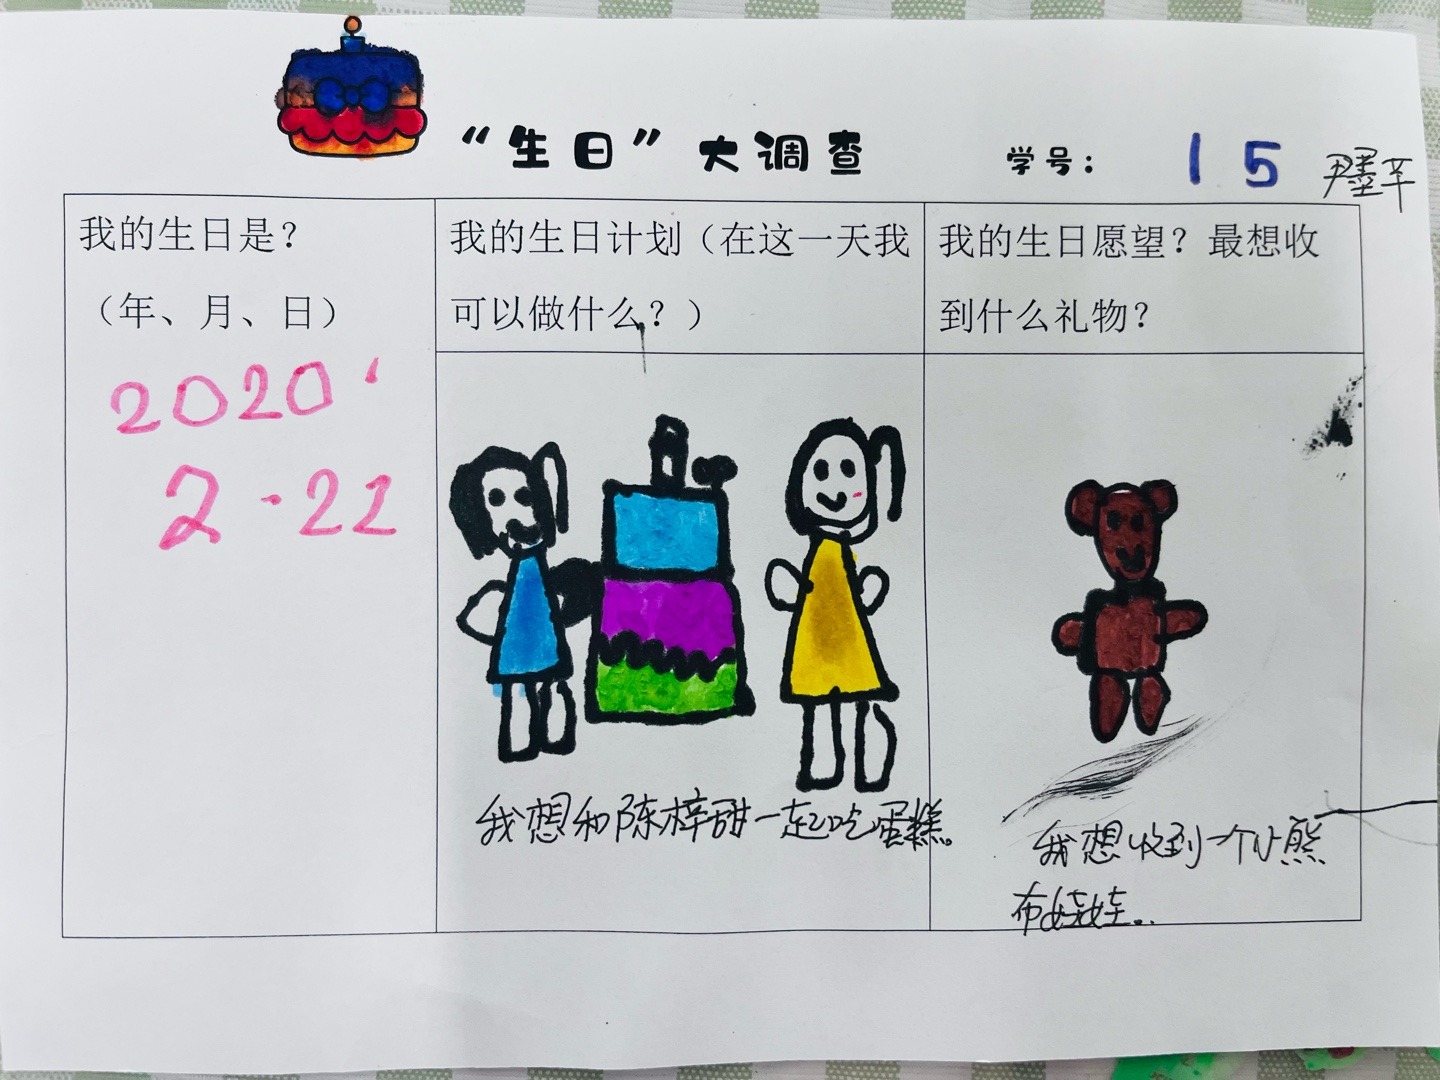 “生日”大调查 学号： 15 尹墨芊
我的生日是？
（年、月、日）
2020 ·
2·22
我的生日计划（在这一天我
可以做什么？）
我想和陈梓甜一起吃蛋糕。
我的生日愿望？最想收
到什么礼物？
我想收到一个小熊
布娃娃。